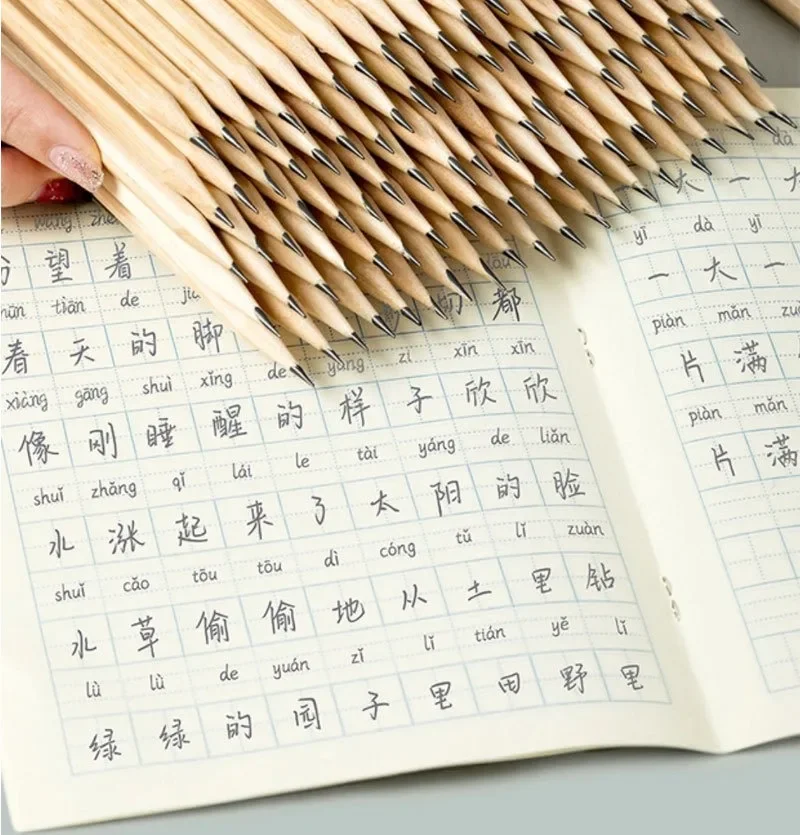 wàng
望 着
tiān de
春 天 的 脚 切 都
xiàng gāng shuì xǐng de yàng zi xīn xīn
像 刚 睡 醒 的 样 子 欣 欣
shuǐ zhǎng qǐ lái le tài yáng de liǎn
水 涨 起 来 了 太 阳 的 脸
shuǐ cǎo tōu tōu dì cóng tǔ lǐ zuàn
水 草 偷 偷 地 从 土 里 钻
lù lù de yuán zǐ lǐ tián yě lǐ
绿 绿 的 园 子 里 田 野 里
dà
一 大 一 大
yī dà yī
一 大 一
piàn mǎn
片 满
piàn mǎn
片 满